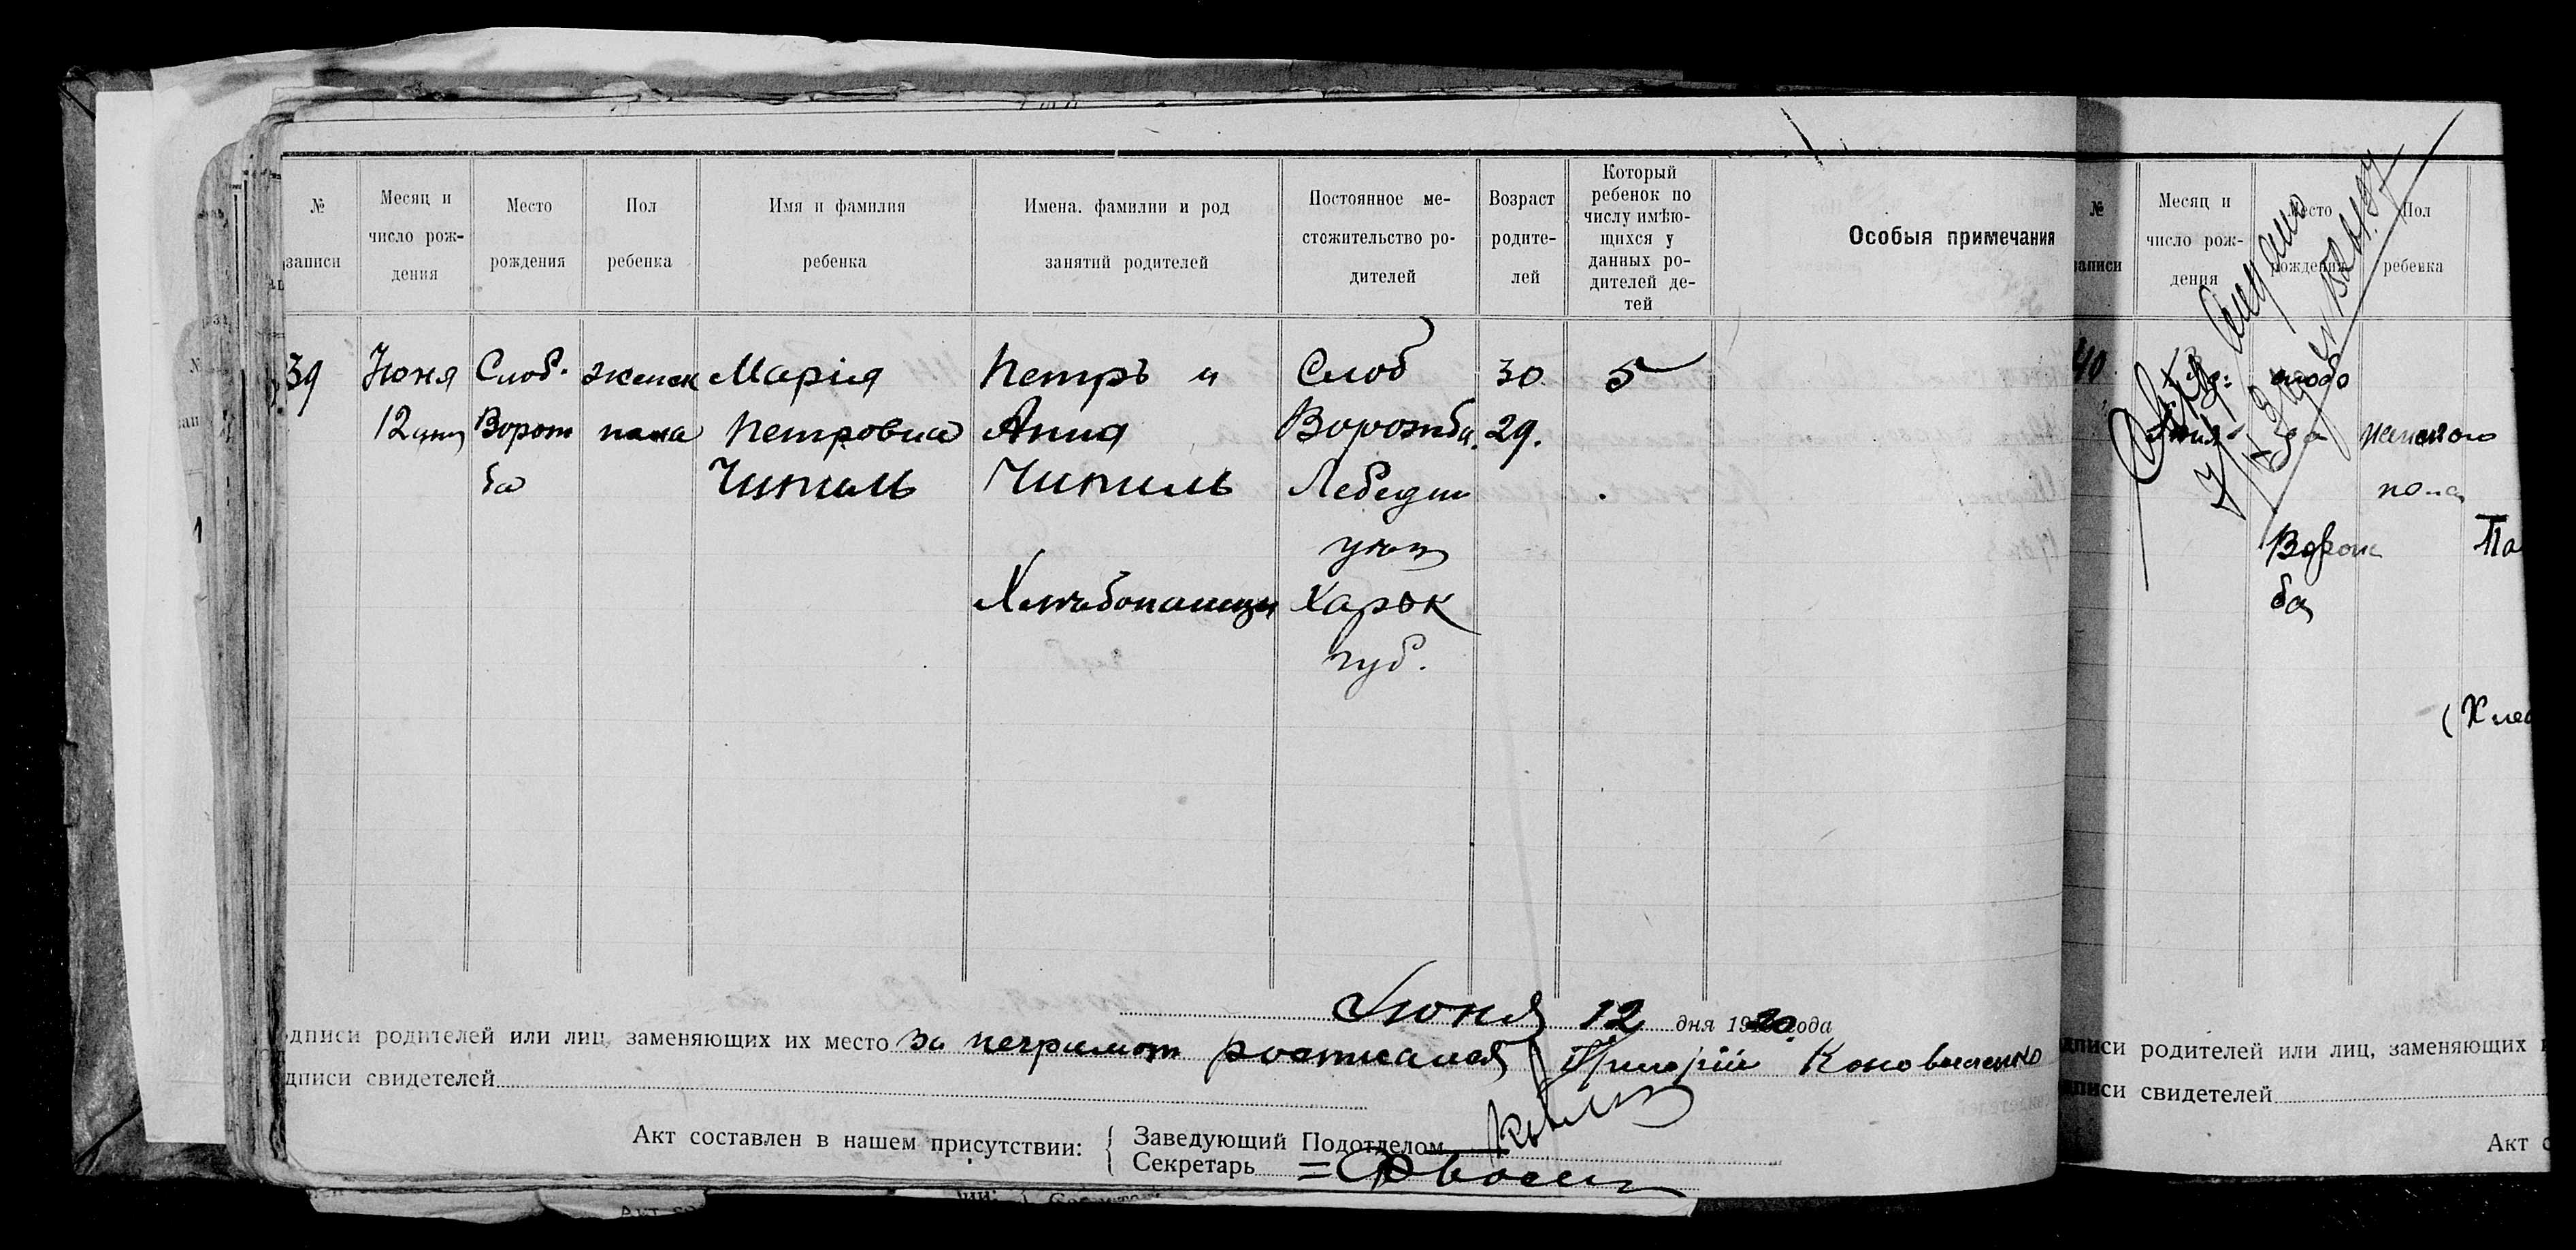 № записи
Месяц и число рождения
Место рождения
Пол ребенка
Имя и фамилия ребенка
Имена, фамилии и род занятий родителей
Постоянное местожительство родителей
Возраст родителей
Который ребенок по числу имѣющихся у данных родителей детей
Особыя примечания
39 Июня Слоб. женск Марія Петръ и Слоб 30 5
12 дня Ворож пола Петровна Анна Ворожба 29.
ба Чипиль Чипиль Лебедин
уезд
Хлебопашцы Харьк
губ.
Июня 12 дня 1920 года
одписи родителей или лиц, заменяющих их место за неграмот росписался Григорій Коноваленко
дписи свидетелей
Акт составлен в нашем присутствии:
Заведующий Подотделом
Секретарь
№ записи
Месяц и число рождения
Место рождения
Пол ребенка
40
женского
пола
Ворож
ба
дписи родителей или лиц, заменяющих
дписи свидетелей
Акт с